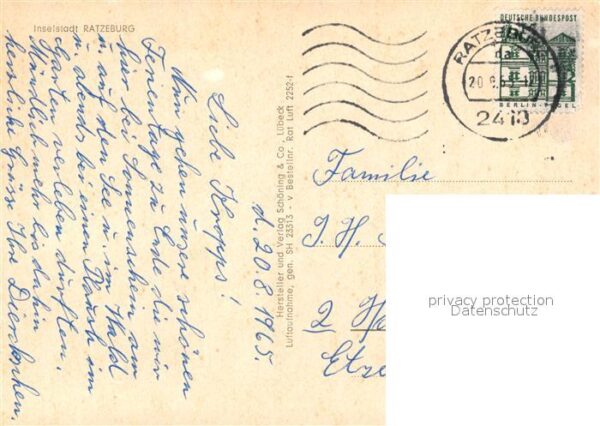 Inselstadt RATZEBURG
d. 20.8.1965.
Liebe Kropps!
Nun gehen unsere schönen
Ferientage zu Ende die wir
hier bei Sonnenschein am
u. auf dem See u. im Wald
u. abends bei einem Plausch im
Garten verleben durften.
Mündlich mehr bis dahin
herzliche Grüsse Ihre
Hersteller und Verlag Schöning & Co., Lübeck
Luftaufnahme, gen. SH 23313 - V Bestellnr. Rat Luft 2252-f
DEUTSCHE BUNDESPOST
BERLIN-TEGEL
RATZEBURG
2418
Familie
J. H.
2 H
Etze
privacy protection
Datenschutz